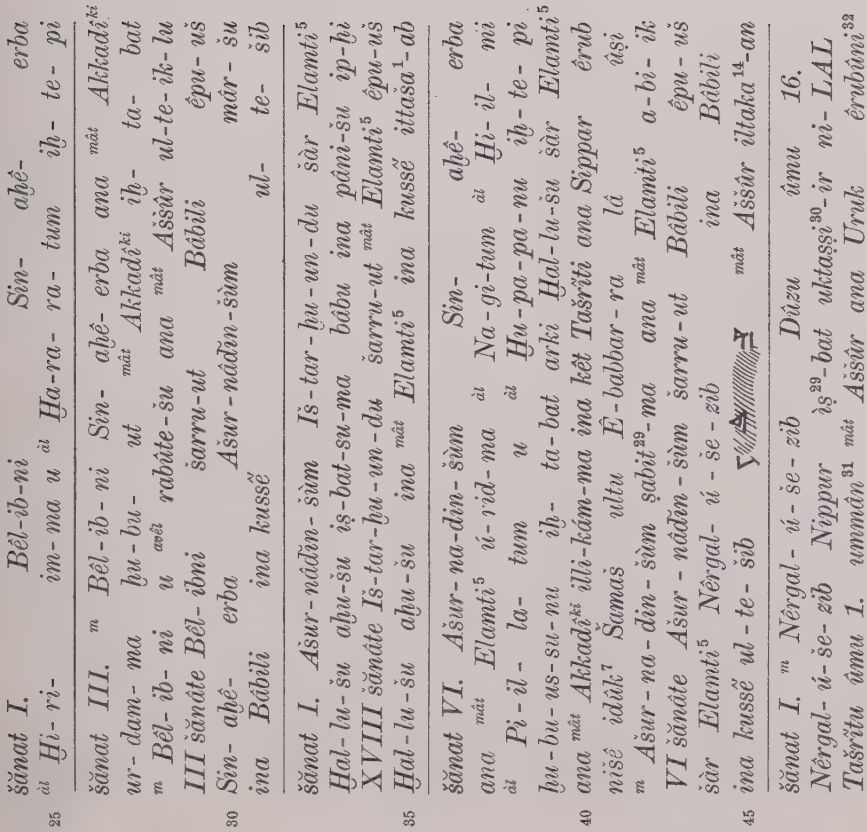 šănat I. Bêl-ib-ni Sin- aḫê- erba
25 àl Ḫi-ri- im-ma u àl Ḫa-ra-ra-tum iḫ-te-pi
šănat III. m Bêl-ib-ni Sin-aḫê-erba ana mât Akkadî ki
ur-dam-ma ḫu-bu-ut mât Akkadî ki iḫ-ta-bat
m Bêl-ib-ni u avêl rabúte-šu ana mât Aššûr ul-te-ik-lu
III šănâte Bêl-ibni šarru-ut Bâbili êpu-uš
30 Sin-aḫê-erba Ašur-nâdin-šùm mâr-šu
ina Bâbili ina kussê ul-te-šib
šănat I. Ašur-nâdin-šùm Iš-tar-ḫu-un-du šàr Elamti 5
Ḫal-lu-šu aḫu-šu iṣ-bat-su-ma bâbu ina pâni-šu ip-ḫi
XVIII šănâte Iš-tar-ḫu-un-du šarru-ut mât Elamti 5 êpu-uš
35 Ḫal-lu-šu aḫu-šu ina mât Elamti 5 ina kussê ittaša 1-ab
šănat VI. Ašur-na-din-šùm Sin- aḫê- erba
ana mât Elamti 5 ú-rid-ma àl Na-gi-tum àl Ḫi-il-mi
àl Pi-il-la-tum u àl Ḫu-pa-pa-nu iḫ-te-pi
ḫu-bu-us-su-nu iḫ-ta-bat arki Ḫal-lu-šu šàr Elamti 5
40 ana mât Akkadî ki illi-kám-ma ina ḳêt Tašrîti ana Sippar êrub
nišê idûk 7 Šamaš ultu Ê-babbar-ra lâ ûṣi
m Ašur-na-din-šùm ṣabit 29-ma ana mât Elamti 5 a-bi-ik
VI šănâte Ašur-nâdin-šùm šarru-ut Bâbili êpu-uš
šàr Elamti 5 Nêrgal-ú-še-zib ina Bâbili
45 ina kussê ul-te-šib mât Aššûr iltaka 14-an
šănat I. m Nêrgal-ú-še-zib Dûzu ûmu 16.
Nêrgal-ú-še-zib Nippur iṣ 29-bat uktaṣṣi 30-ir ni-LAL
Tašrîtu ûmu 1. ummân 31 mât Aššûr ana Uruk êrubûmi 32